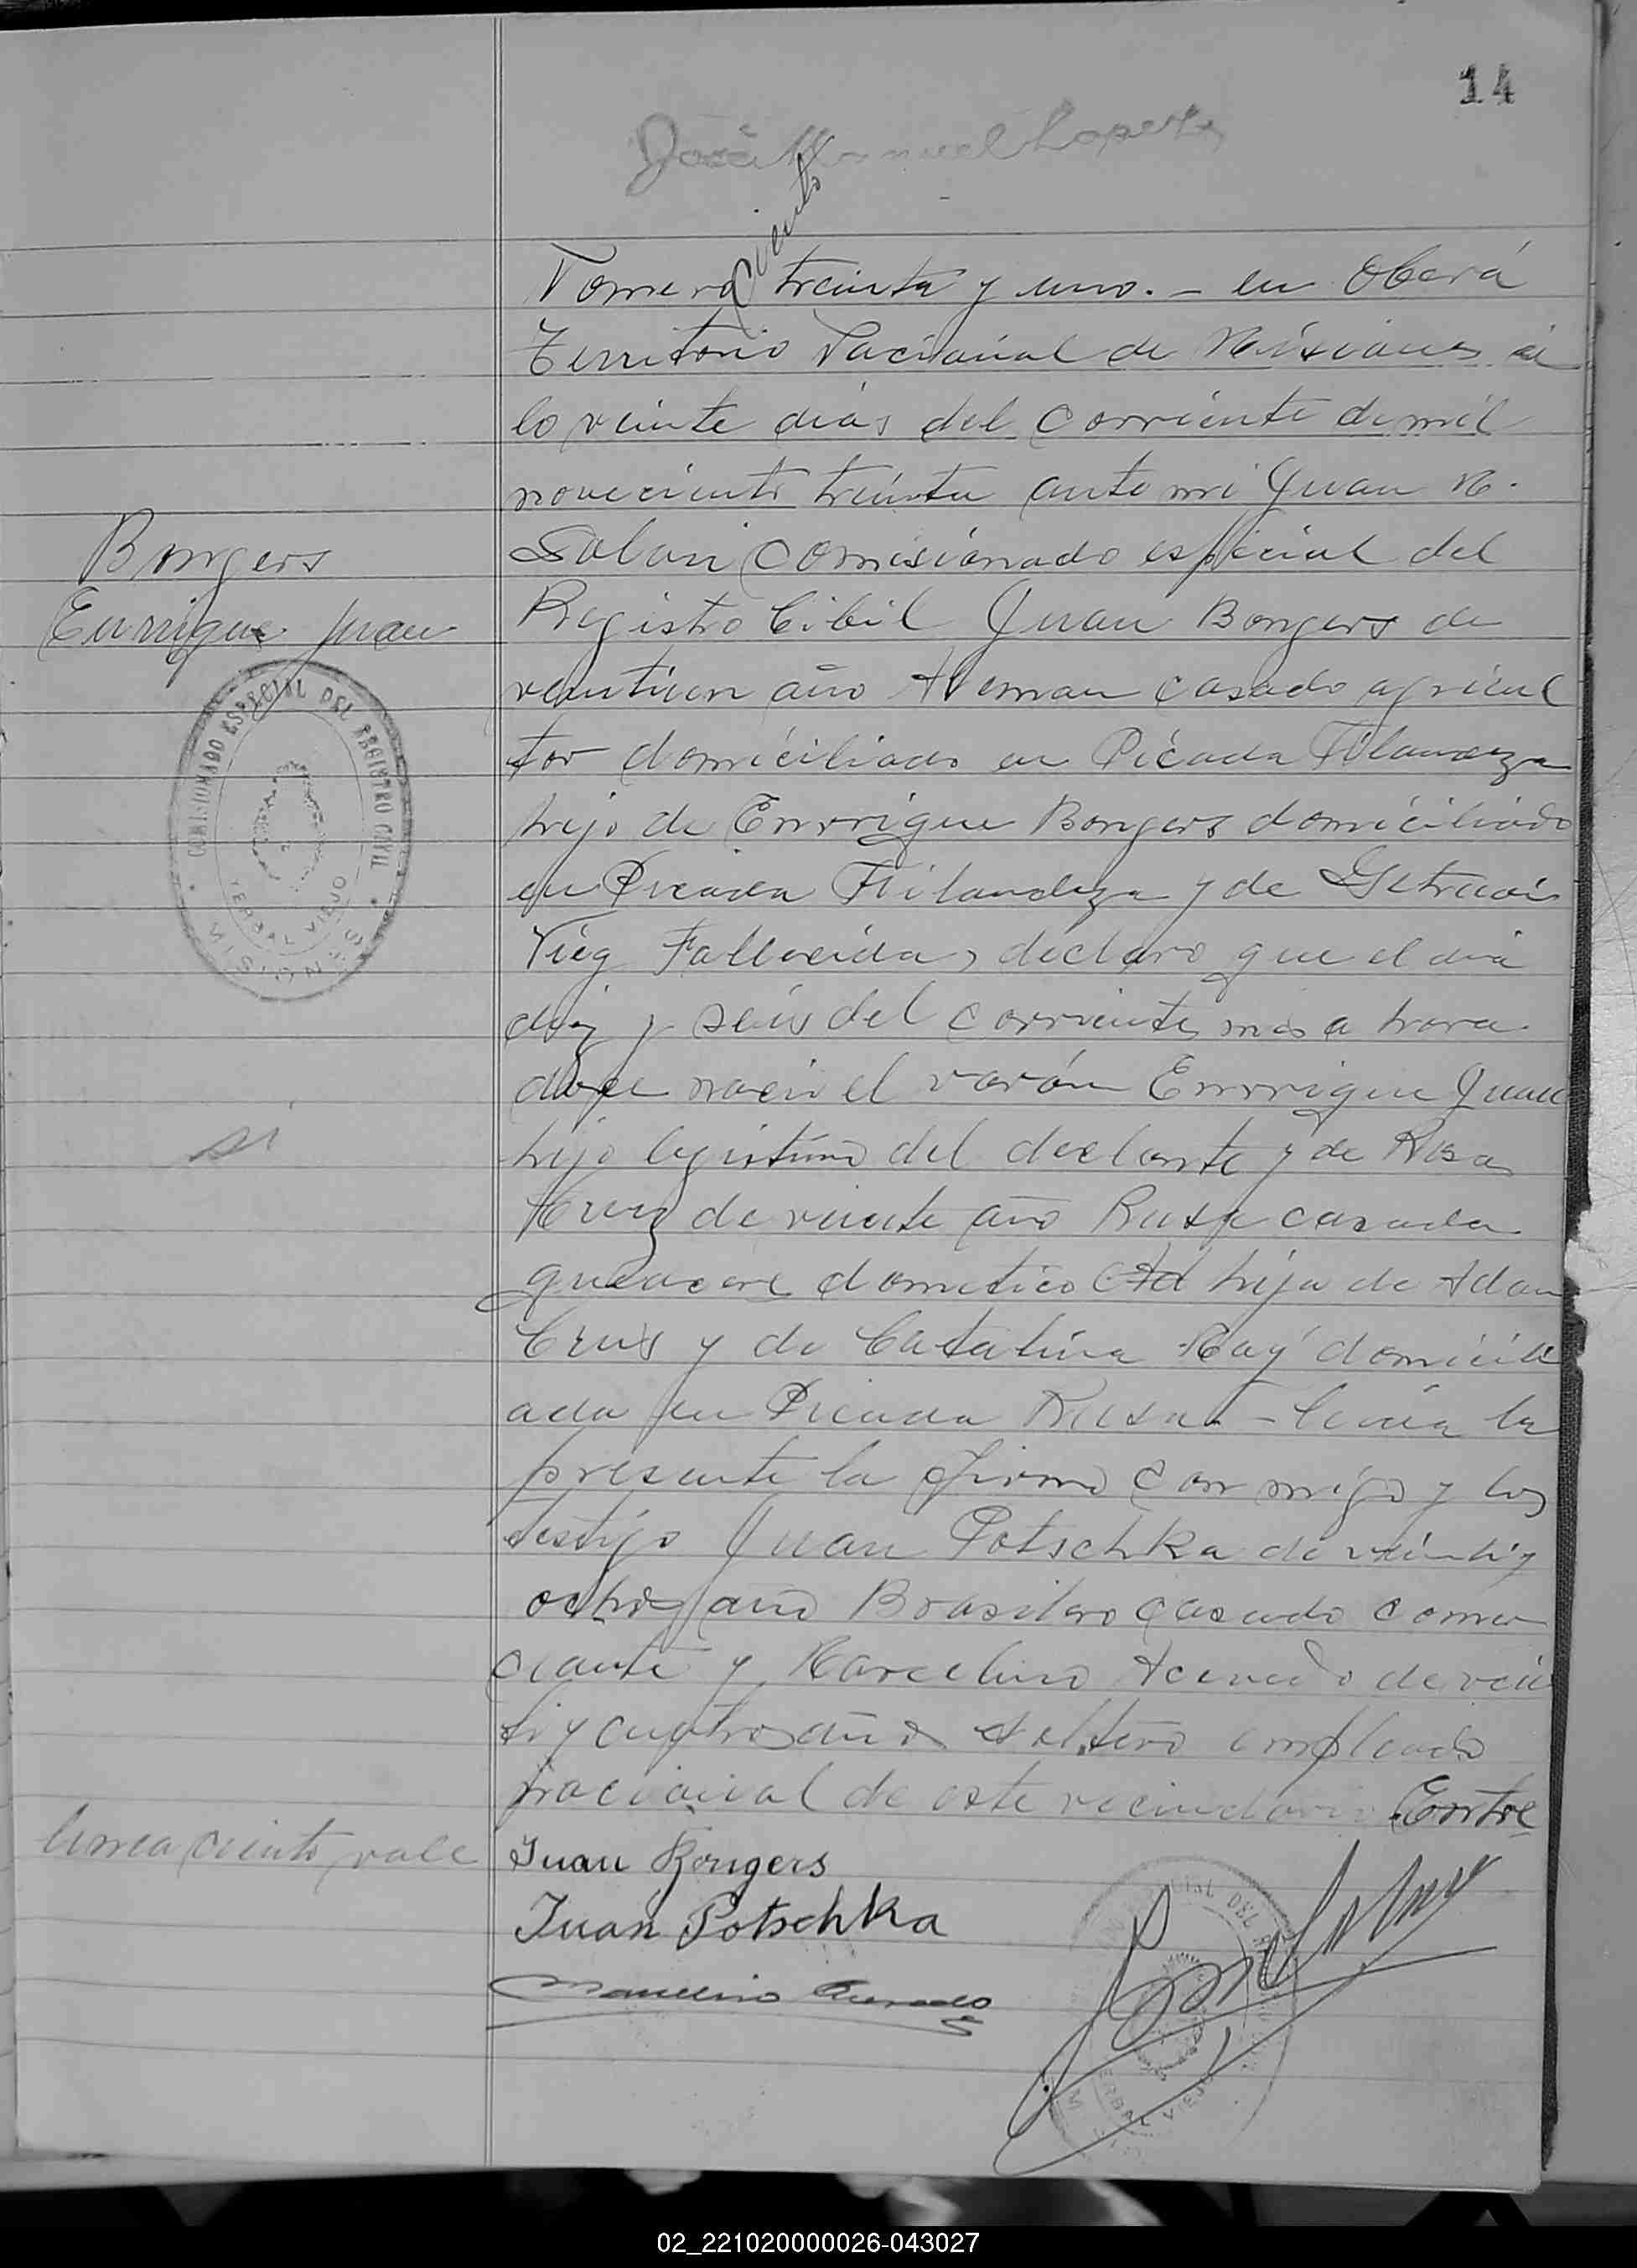 14
José Manuel
ciento
Nomero treinta y uno. - en Oberá
Territorio Nacional de Misiones a
lo veinte dias del corriente de mil
noveciento treinta ante mi Juan M.
comisionado espicial del
Registro Cibil Juan Bongers de
ventiun año Aleman casado agricul
tor domiciliado en Picada Filandeza
hijo de Enrrique Bongers domiciliado
en Picada Filandeza y de
Fallecida, declaro que el dia
diez y seis del corriente mes a hora
doce nacio el varón Enrrique Juan
hijo legistimo del declante y de Rosa
de veinte año Rusa casada
queacere dometico hija de Adan
Crus y de Catalina domicili
ada en Picada Rusa. - leida la
presente la firmo con migo y los
testigo Juan Potschka de veinti y
ocho año Brasilero casado comer
ciante y Marcelino Acevedo de vein
ti y cuatro año soltero empleado
nacional de este vecindario. Entre
Bongers
Enrrique Juan
COMISIONADO ESPECIAL DEL REGISTRO CIVIL
YERBAL VIEJO
MISIONES
si
linea ciento vale
Juan Bongers
Juan Potschka
Marcelino Acevedo
02_221020000026-043027